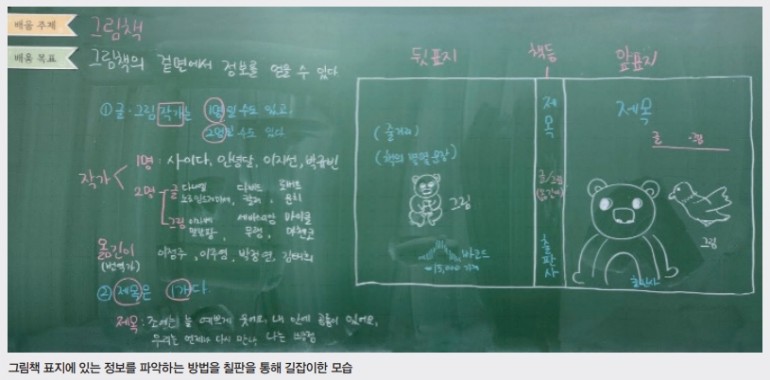 배움 주제
그림책
배움 목표
그림책의 겉면에서 정보를 얻을 수 있다.
① 글·그림 작가는 1명일 수도 있고
2명일 수도 있다
작가
1명 : 사이다, 안녕달, 이지선, 박규빈
2명
글 다니엘 데이비드 로버트
그림 세바스티앙 마이클
옮긴이
(번역가)
이정주, 이주영, 박정연, 김태희
② 제목은 1개다
제목 : 조에는 늘 예쁘게 웃어요, 내 안에 공룡이 있어요,
우리는 언제나 다시 만나, 나는
뒷표지
책등
앞표지
(줄거리)
(책의 문장)
그림
바코드
15,000 가격
제목
글/그림
(옮긴이)
출판사
제목
글 ·그림
그림
출판사
그림책 표지에 있는 정보를 파악하는 방법을 칠판을 통해 길잡이한 모습